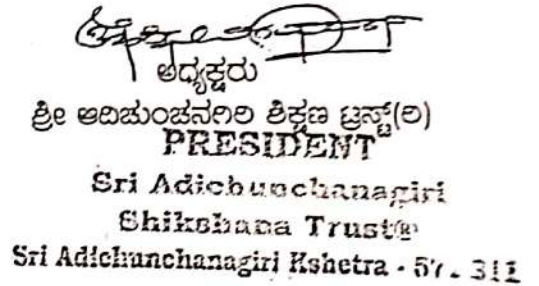 ಅಧ್ಯಕ್ಷರು
ಶ್ರೀ ಆದಿಚುಂಚನಗಿರಿ ಶಿಕ್ಷಣ ಟ್ರಸ್ಟ್(ರಿ)
PRESIDENT
Sri Adichunchanagiri
Shikshana Trust®
Sri Adichunchanagiri Kshetra -